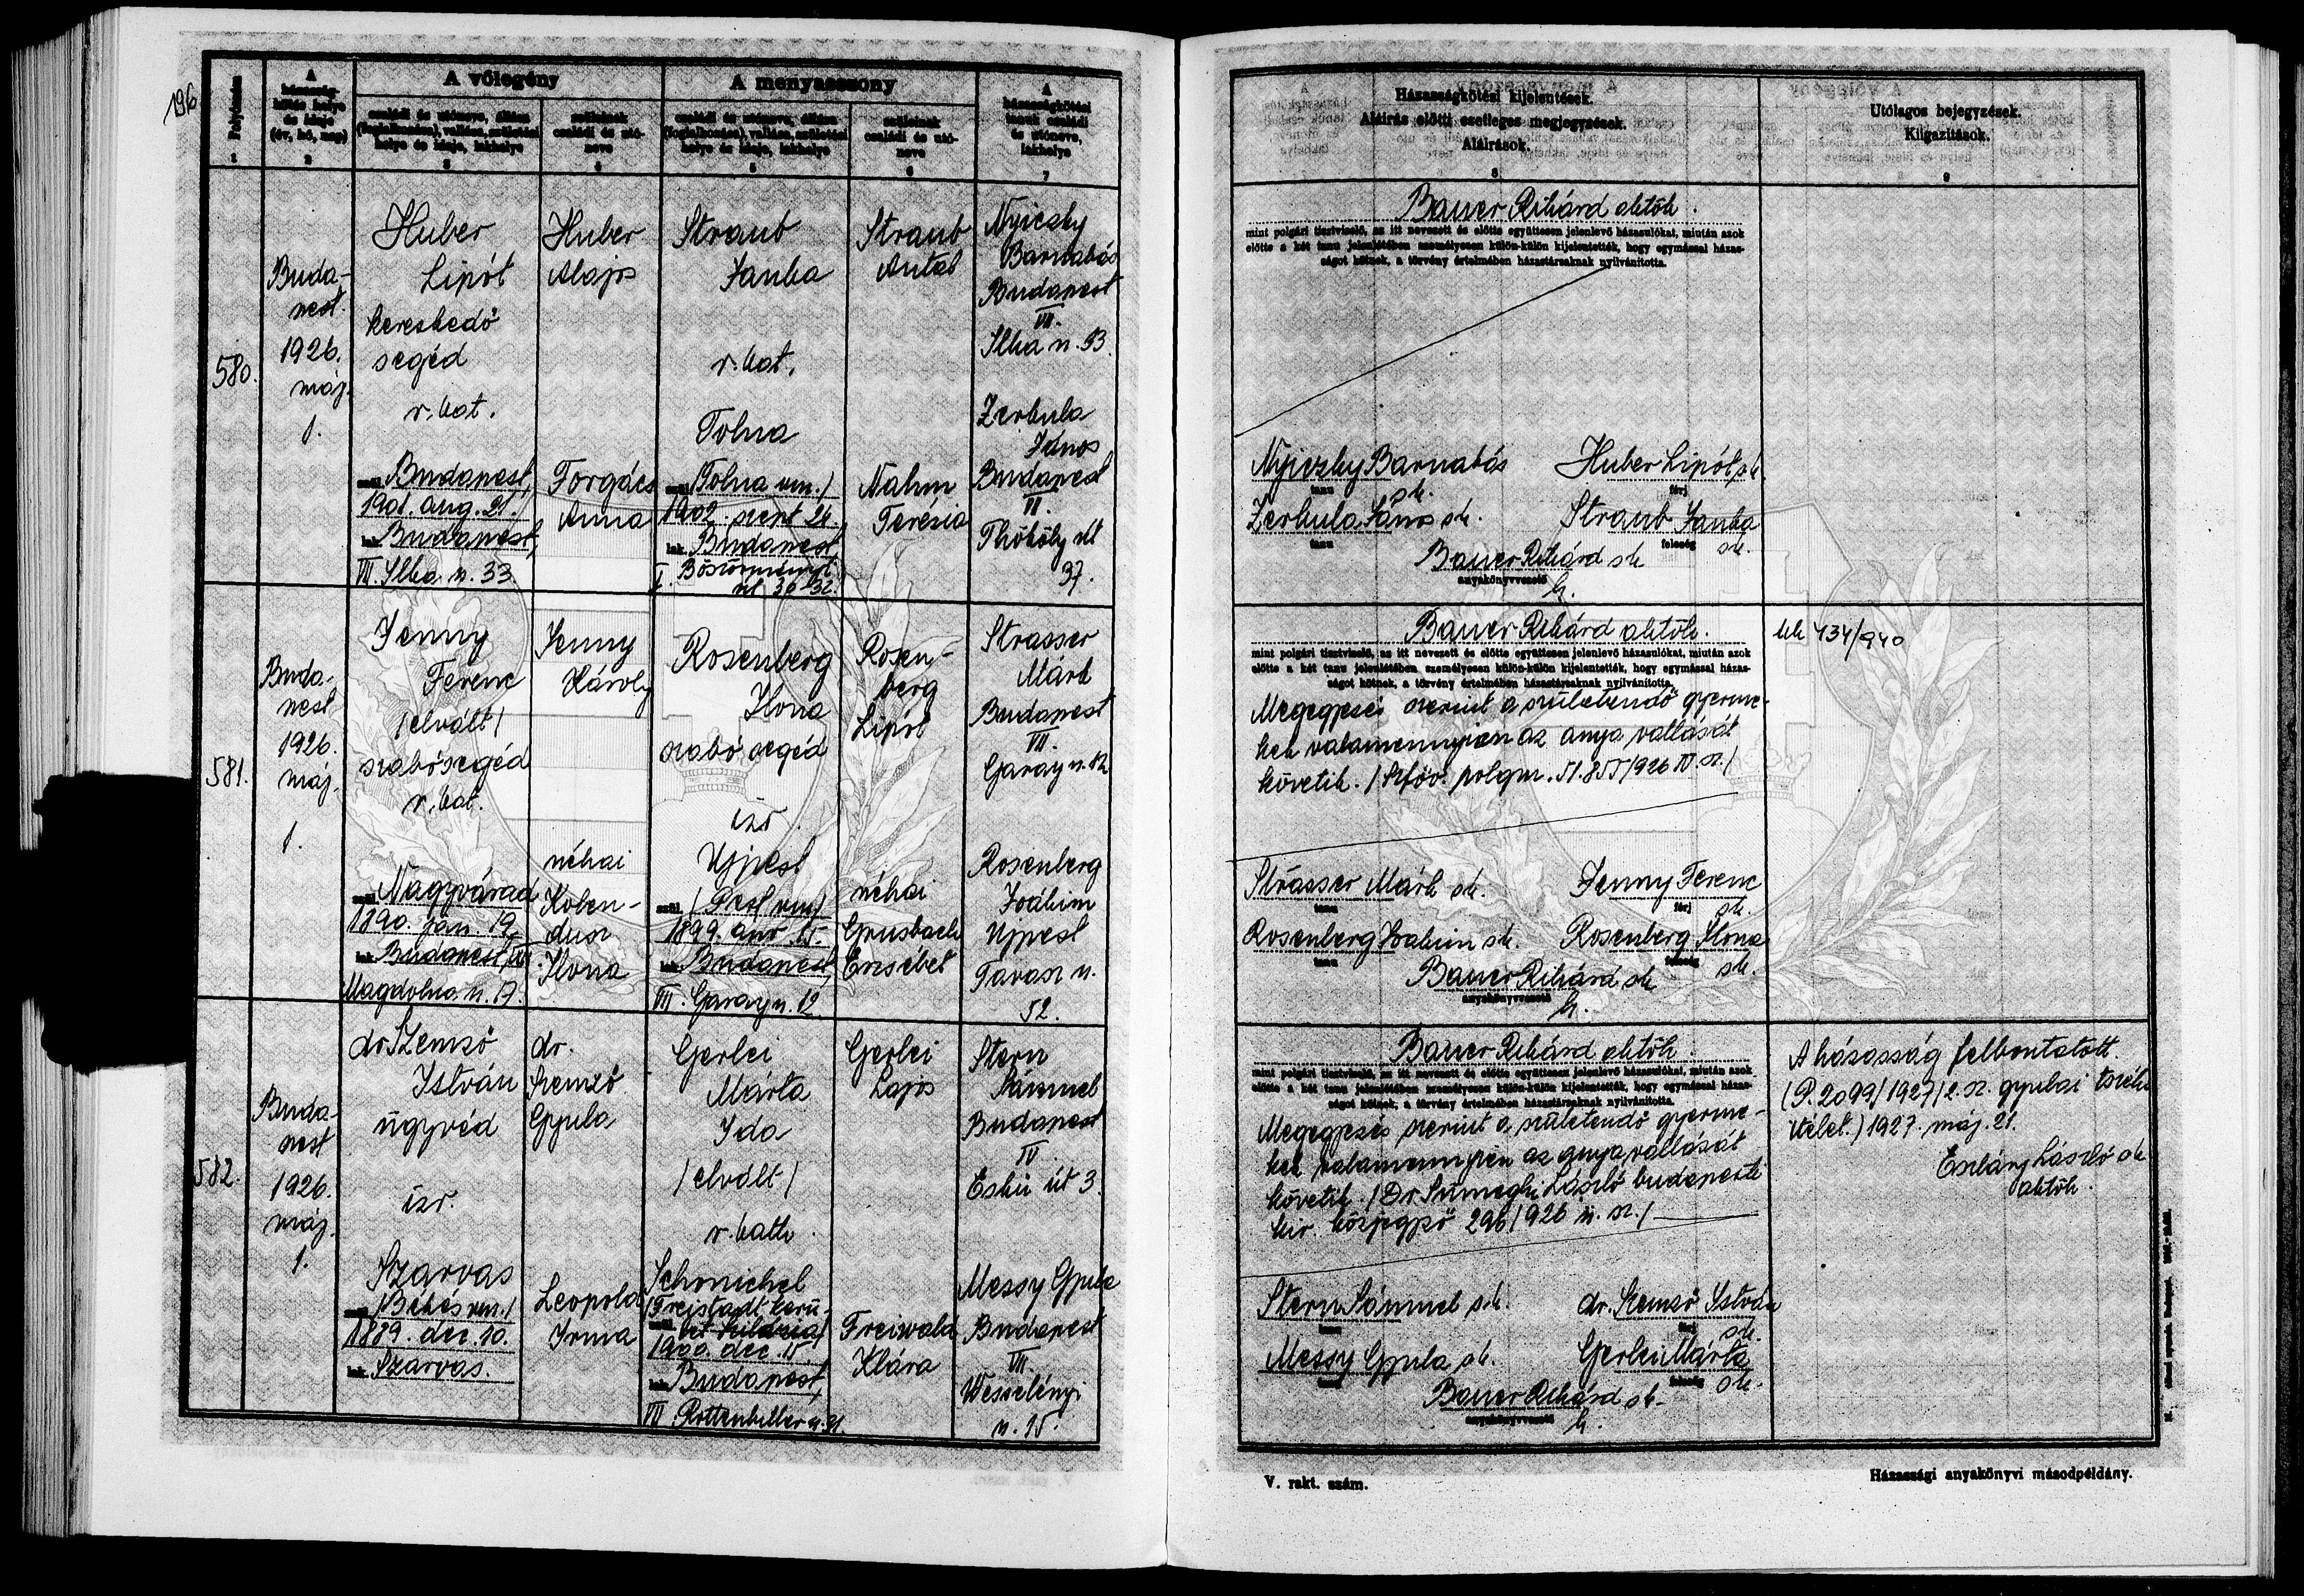 196
Folyószám
1
A
házasság-
kötés helye
és ideje
(év, hó, nap)
2
A vőlegény
családi és utóneve, állása
(foglalkozása), vallása, születési
helye és ideje, lakhelye
3
szüleinek
családi és utó-
neve
4
A menyasszony
családi és utóneve, állása
(foglalkozása), vallása, születési
helye és ideje, lakhelye
5
szüleinek
családi és utó-
neve
6
A
házasságkötési
tanuk családi
és utóneve,
lakhelye
7
580.
Buda-
pest.
1926.
máj.
1.
Huber
Lipót
kereskedő
segéd
r. kat.
szül. Budapest,
1901. aug. 21.
lak. Budapest,
VII. Ilka u. 33
Huber
Alajos
Forgács
Anna
Straub
Janka
r. kat.
Tolna
szül. (Tolna vm.)
1902. szept 24.
lak. Budapest,
I. Böszörményi
út 30-32.
Straub
Antal
Nahm
Terézia
Nyiczky
Barnabás
Budapest
VII.
Ilka u. 33.
Zerkula
János
Budapest
VI.
Thököly út
37.
581.
Buda-
pest
1926.
máj.
1.
Jenny
Ferenc
/elvált/
szabósegéd
r. kat.
szül. Nagyvárad
1890. jan. 19.
lak. Budapest,
Magdolna u. 17.
Jenny
Károly
néhai
Koben-
dusz
Ilona
Rosenberg
Ilona
szabó segéd
izr.
Ujpest
szül. (Pest vm.)
1899. ápr. 15.
lak. Budapest,
VII. Garay u. 12.
Rosen-
berg
Lipót
néhai
Grusbach
Erzsébet
Strasser
Márk
Budapest
VII.
Garay u. 12
Rosenberg
Joákim
Ujpest
Tavasz u.
52.
582.
Buda-
pest
1926.
máj.
1.
dr Szemző
István
ügyvéd
izr.
Szarvas
szül. (Békés vm.)
1889. dec. 10.
lak. Szarvas.
dr.
Szemző
Gyula
Leopold
Irma
Gerlei
Márta
Ida
/elvált/
r. kath.
Schonichel
(Freistadt kerü-
szül. let Szilézia)
1900. dec. 15.
lak. Budapest,
VII. Rottenbiller u. 31.
Gerlei
Lajos
Freiwald
Klára
Stern
Sámuel
Budapest
IV.
Eskü út 3.
Messy Gyula
Budapest
VII.
Wesselényi
u. 15.
Házasságkötési kijelentések.
Aláírás előtti esetleges megjegyzések.
Aláírások.
8
Utólagos bejegyzések.
Kiigazítások.
9
Bauer Rihárd aktök.
mint polgári tisztviselő, az itt nevezett és előtte együttesen jelenlevő házasulókat, miután azok
előtte a két tanu jelenlétében személyesen külön-külön kijelentették, hogy egymással házas-
ságot kötnek, a törvény értelmében házastársaknak nyilvánította.
Nyiczky Barnabás sk.
tanu
Huber Lipót sk.
férj
Zerkula János sk.
tanu
Straub Janka sk.
feleség
Bauer Rihárd sk
anyakönyvvezető
h.
Bauer Rihárd aktök.
mint polgári tisztviselő, az itt nevezett és előtte együttesen jelenlevő házasulókat, miután azok
előtte a két tanu jelenlétében személyesen külön-külön kijelentették, hogy egymással házas-
ságot kötnek, a törvény értelmében házastársaknak nyilvánította.
Megegyezés szerint a születendő gyerme-
kek valamennyien az anya vallását
követik. / Szföv. polgm. 51.855/1926 IV. sz./
434/940
Strasser Márk sk.
tanu
Jenny Ferenc sk.
férj
Rosenberg Joákim sk.
tanu
Rosenberg Ilona sk.
feleség
Bauer Rihárd sk
anyakönyvvezető
h.
Bauer Rihárd aktök
mint polgári tisztviselő, az itt nevezett és előtte együttesen jelenlevő házasulókat, miután azok
előtte a két tanu jelenlétében személyesen külön-külön kijelentették, hogy egymással házas-
ságot kötnek, a törvény értelmében házastársaknak nyilvánította.
Megegyezés szerint a születendő gyerme-
kek valamennyien az anya vallását
követik. / Dr Sümeghi László budapesti
kir. közjegyző 296/926 ü. sz./
A házasság felbontatott.
(P. 2099/1927/2. sz. gyulai tszéki
itélet.) 1927. máj. 21.
László sk
aktök.
Stern Sámuel sk.
tanu
dr. Szemző István sk.
férj
Messy Gyula sk.
tanu
Gerlei Márta sk.
feleség
Bauer Rihárd sk.
anyakönyvvezető
h.
V. rakt. szám.
Házassági anyakönyvi másodpéldány.